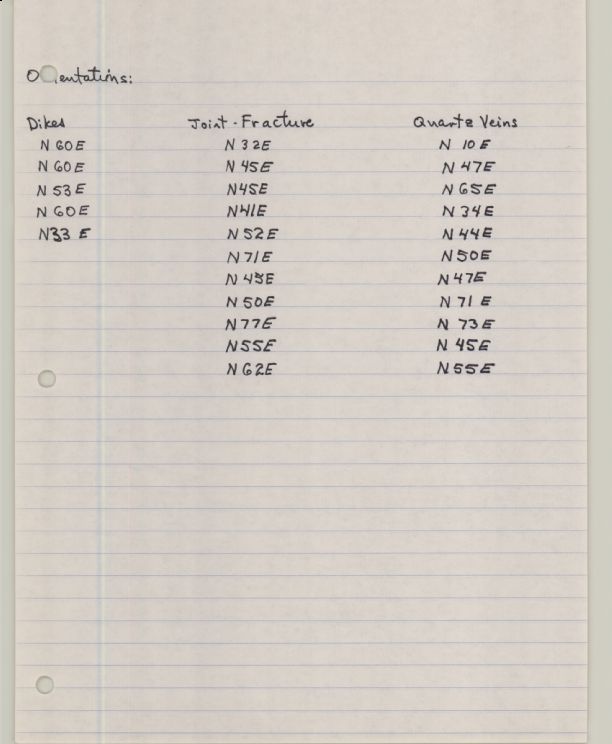 Orientations:
Dikes Joint-Fracture Quartz Veins
N 60E N 32E N 10E
N 60E N 45E N 47E
N 53E N45E N65E
N 60E N41E N 34E
N33 E N 52E N 44E
N 71E N50E
N 45E N47E
N 50E N 71 E
N77E N 73E
N55E N 45E
N 62E N55E